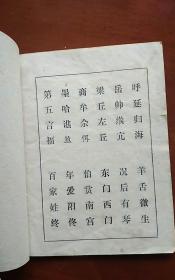 呼延归海 羊舌微生
岳帅缑亢 况后有琴
梁丘左丘 东门西门
商牟佘佴 伯赏南宫
墨哈谯笪 年爱阳佟
第五言福 百家姓终